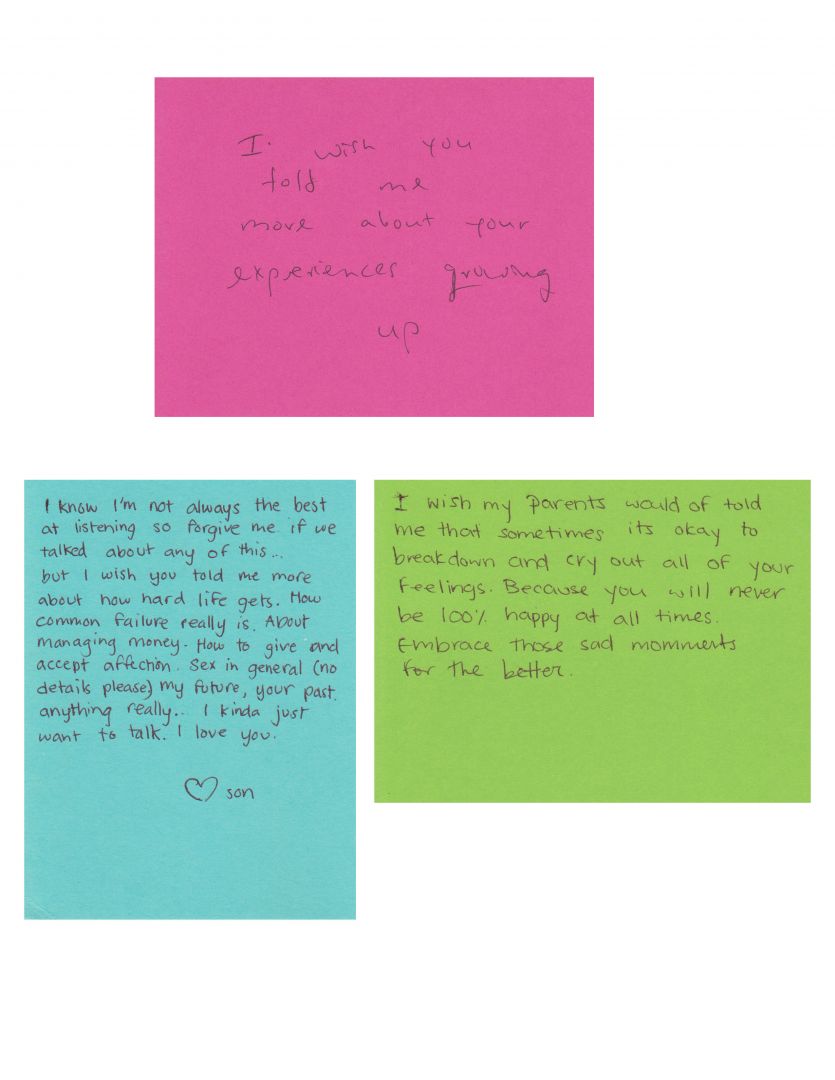 I. wish you
told me
more about your
experiences growing
up
I know I'm not always the best
at listening so forgive me if we
talked about any of this...
but I wish you told me more
about how hard life gets. How
common failure really is. About
managing money. How to give and
accept affection. Sex in general (no
details please) my future, your past.
anything really... I kinda just
want to talk. I love you.
♡ son
I wish my parents would of told
me that sometimes its okay to
breakdown and cry out all of your
feelings. Because you will never
be 100% happy at all times.
Embrace those sad momments
for the better.